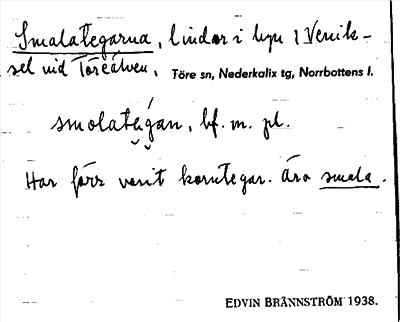 Smalategarna, lindor i byn i Vvnik-
sel vid Töreälven, Töre sn, Nederkalix tg, Norrbottens l.
smolatẹ́gan, bf. m. pl.
Har förr varit korntegar. Äro smala.
EDVIN BRÄNNSTRÖM 1938.